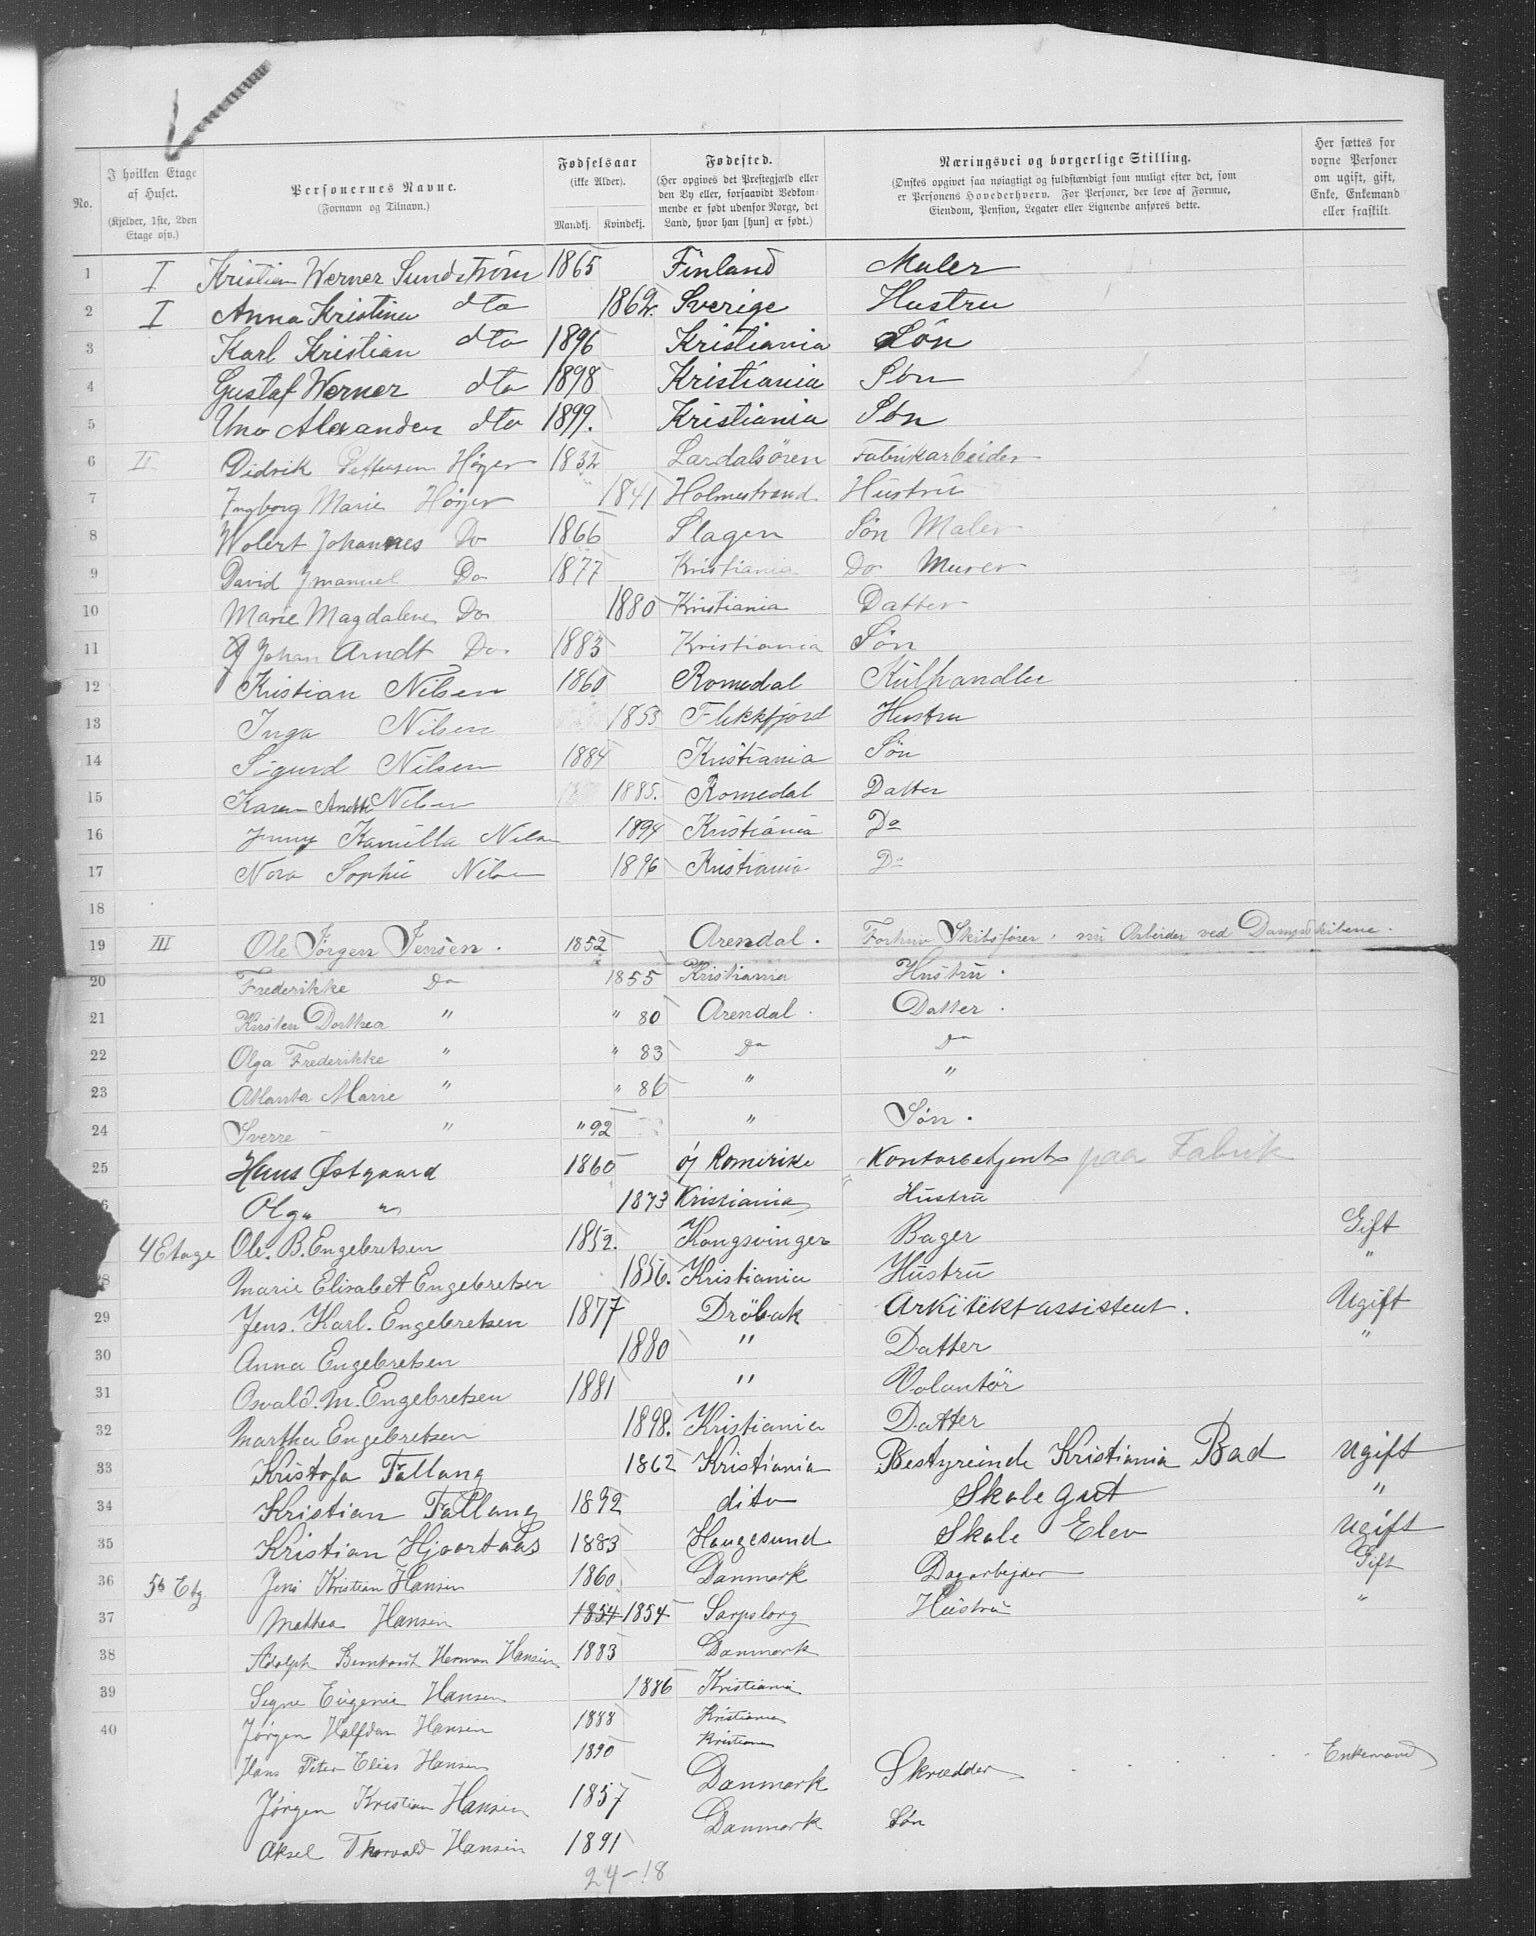 No. I hvilken Etage af Huset. (Kjelder, 1ste, 2den Etage osv.) Personernes Navne. (Fornavn og Tilnavn.) Fødselsaar (ikke Alder). Mandkj. Kvindekj. Fødested. (Her opgives det Prestegjæld eller den By eller, forsaavidt Vedkommende er født udenfor Norge, det Land, hvor han [hun] er født.) Næringsvei og borgerlige Stilling. (Ønskes opgivet saa nøiagtigt og fuldstændigt som muligt efter det, som er Personens Hovederhverv. For Personer, der leve af Formue, Eiendom, Pension, Legater eller Lignende anføres dette. Her sættes for voxne Personer om ugift, gift, Enke, Enkemand eller fraskilt.
1 I Kristian Werner Sundström 1865 Finland Maler
2 I Anna Kristina dto 1862. Sverige Hustru
3 Karl Kristian dto 1896 Kristiania Søn
4 Gustaf Werner dto 1898 Kristiania Søn
5 Uno Alexander dto 1899. Kristiania Søn
6 II Didrik Pettersen Höyer 1832 Lardalsören Fabrikarbeider
7 Ingborg Marie Höyer 1841 Holmestrand Hustru
8 Wolert Johannes Do 1866 Slagen Søn Maler
9 David Imanuel Do 1877 Kristiania Do Murer
10 Marie Magdalene Do 1880 Kristiania Datter
11 Johan Arndt Do 1883 Kristiania Søn
12 Kristian Nilsen 1860 Romedal Kulhandler
13 Inga Nilsen 1853 Flekkfjord Hustru
14 Sigurd Nilsen 1884 Kristiania Søn
15 Karen Anette Nilsen 1885. Romedal Datter
16 Jenny Kamilla Nilsen 1894 Kristiania Do
17 Nora Sophie Nilsen 1896 Kristiania Do
18
19 III Ole Jørgen Jensen. 1852 Arendal. Forhen Skibsfører. nu Arbeider ved Dampskibene.
20 Frederikke Do 1855 Kristiania Hustru.
21 Kirsten Dorthea " " 80 Arendal. Datter.
22 Olga Frederikke " " 83 Do Do
23 Atlanta Marie " " 86 " "
24 Sverre - " " 92 " Søn.
25 Hans Østgaard 1860 Ø/ Romerike Kontorbetjent paa Fabrik
Olga " 1873 Kristiania Hustru
4 Etage Ole. B. Engebretsen 1852. Kongsvinger Bager Gift
28 Marie Elisabet Engebretsen 1856. Kristiania Hustru "
29 Jens. Karl. Engebretsen 1877 Dröbak Arkitektassistent. Ugift
30 Anna Engebretsen 1880 " Datter "
31 Osvald. M. Engebretsen 1881 " Volontör
32 Martha Engebretsen 1898. Kristiania Datter
33 Kristofa Fallang 1862 Kristiania Bestyreinde Kristiania Bad Ugift
34 Kristian Fallang 1892 dito Skolegut "
35 Kristian Hjortaas 1883 Haugesund Skole Elev Ugift
36 5te Etg Jens Kristian Hansen 1860 Danmark Dagarbejder Gift
37 Mathea Hansen 1854 1854 Sarpsborg Hustru "
38 Adolph Bernhard Herman Hansen 1883 Danmark
39 Signe Eugenie Hansen 1886 Kristiania
40 Jørgen Halfdan Hansen 1888 Kristiania
Hans Peter Elias Hansen 1890 Kristiania
Jørgen Kristian Hansen 1857 Danmark Skrædder Enkemand
Aksel Thorvald Hansen 1891 Danmark Søn
24-18